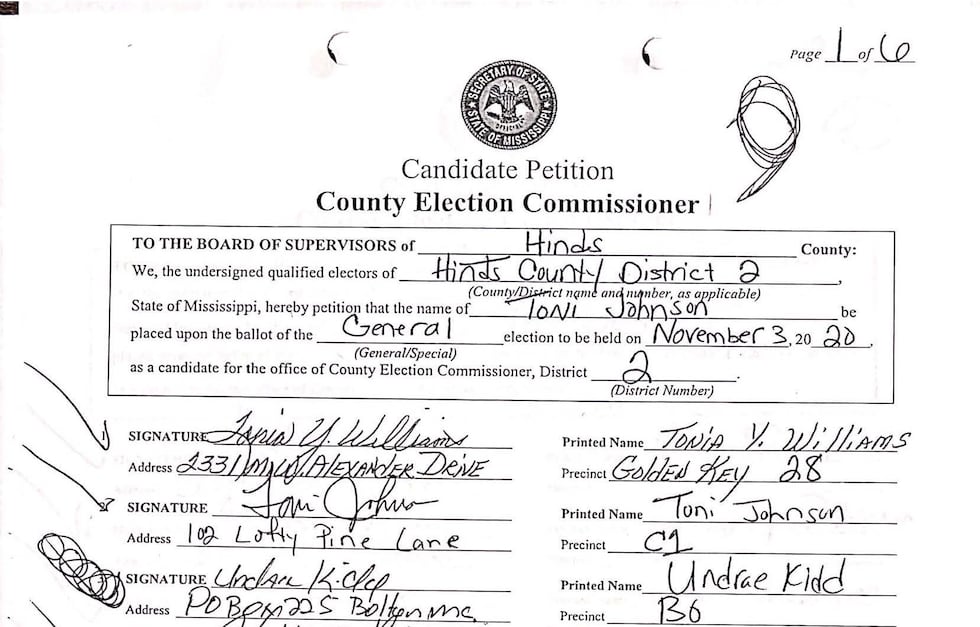 Page 1 of 6
SECRETARY OF STATE
STATE OF MISSISSIPPI
Candidate Petition
County Election Commissioner
TO THE BOARD OF SUPERVISORS of Hinds County:
We, the undersigned qualified electors of Hinds County District 2,
(County/District name and number, as applicable)
State of Mississippi, hereby petition that the name of Toni Johnson be
placed upon the ballot of the General election to be held on November 3, 20 20.
(General/Special)
as a candidate for the office of County Election Commissioner, District 2.
(District Number)
1) SIGNATURE Tonia Y. Williams Printed Name TONIA Y. WILLIAMS
Address 2331 M.W. ALEXANDER DRIVE Precinct GOLDEN KEY 28
2) SIGNATURE Toni Johns Printed Name Toni Johnson
Address 102 Lofty Pine Lane Precinct C1
SIGNATURE Undrae Kidd Printed Name Undrae Kidd
Address PO Box 225 Bolton Precinct B6